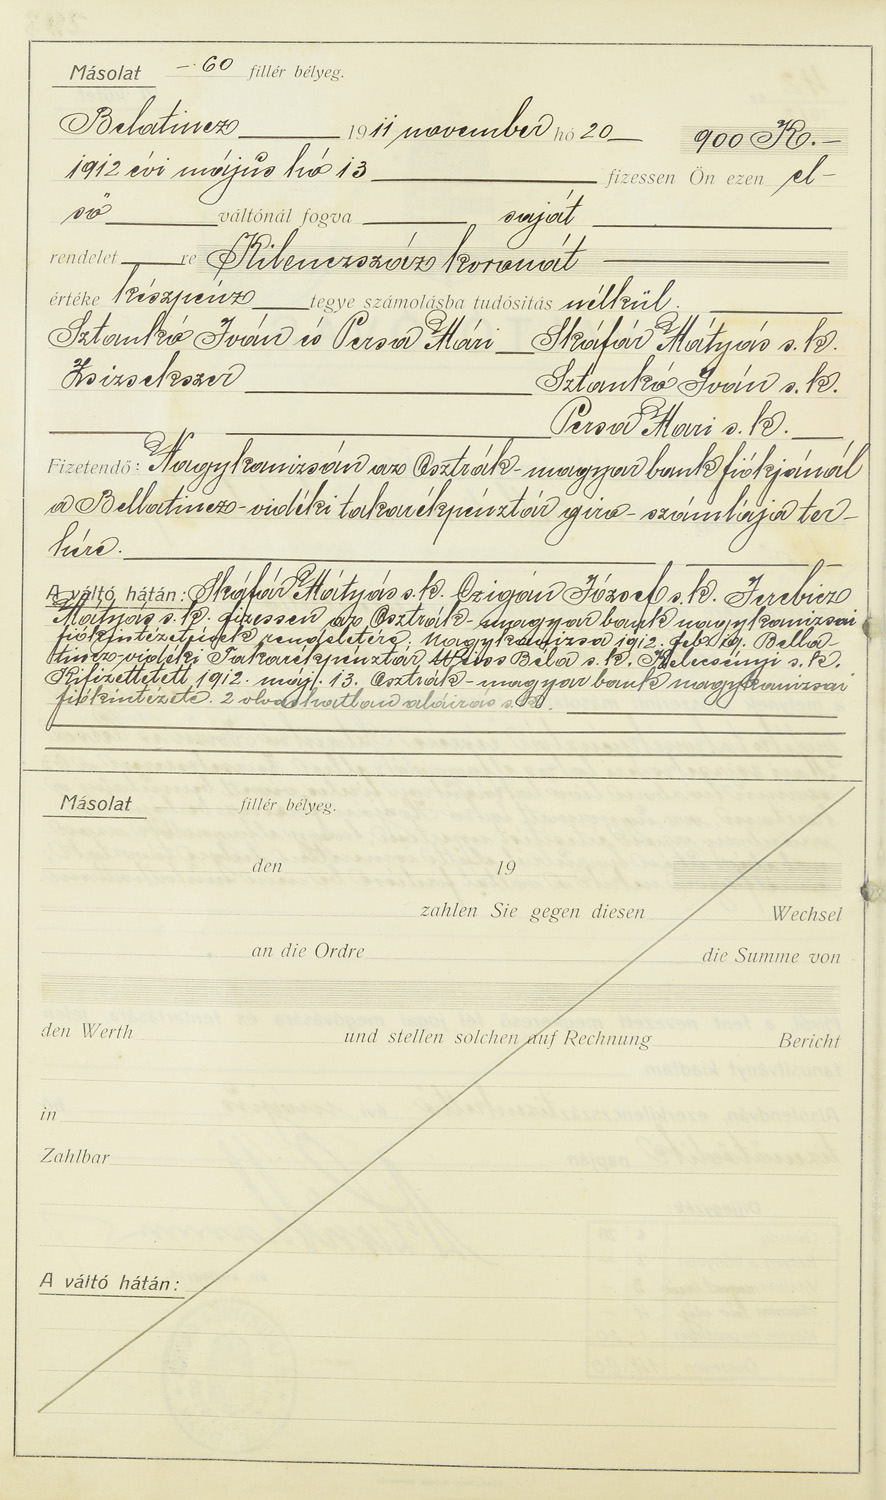 Másolat — 60 fillér bélyeg.
Belatincz 1911 november hó 20 900 K. —
1912 évi május hó 13 fizessen Ön ezen el-
ső váltónál fogva saját
rendelet re Kilenczszáz koronát
értéke készpénz tegye számolásba tudósítás nélkül.
Sztankó Iván és Persa Mári Skáfár Mátyás s. k.
Zsizsekszer Sztankó Iván s. k.
Persa Mari s. k.
Fizetendő: Nagykanizsán az Osztrák-magyar bank fiókjánál
a Bellatincz-vidéki takarékpénztár giro-számlája ter-
hére.
A váltó hátán: Skáfár Mátyás s. k. Czigán József s. k. Jerebicz
Mátyás s. k. fizessen az Osztrák-magyar bank nagykanizsai
fiókintézetjének rendeletére. Nagykanizsa 1912. feb. Bella-
tincz-vidéki Takarékpénztár Weiss Béla s. k. s. k.
Kifizettetett 1912. máj. 13. Osztrák-magyar bank nagykanizsai
fiókintézete. 2 olvashatlan aláirás s. k.
Másolat fillér bélyeg.
den 19
zahlen Sie gegen diesen Wechsel
an die Ordre die Summe von
den Werth und stellen solchen auf Rechnung Bericht
in
Zahlbar
A váltó hátán: